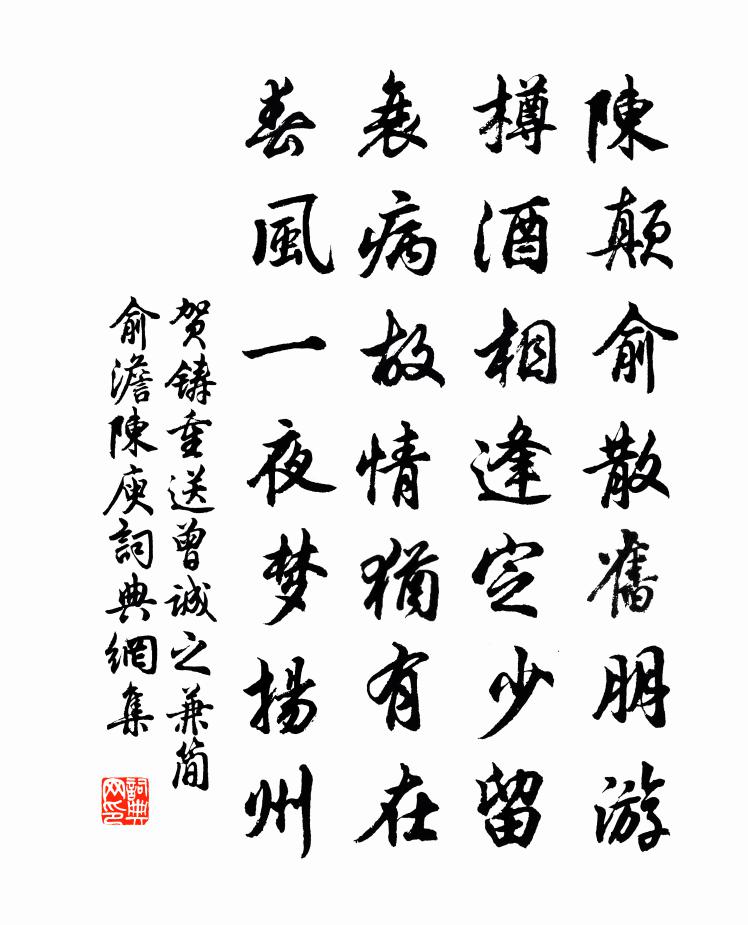 陳顛俞散舊朋游
樽酒相逢定少留
衰病故情猶有在
春風一夜梦揚州
贺鑄重送曾誠之兼简
俞澹陳庾詞典網集
詞典网印